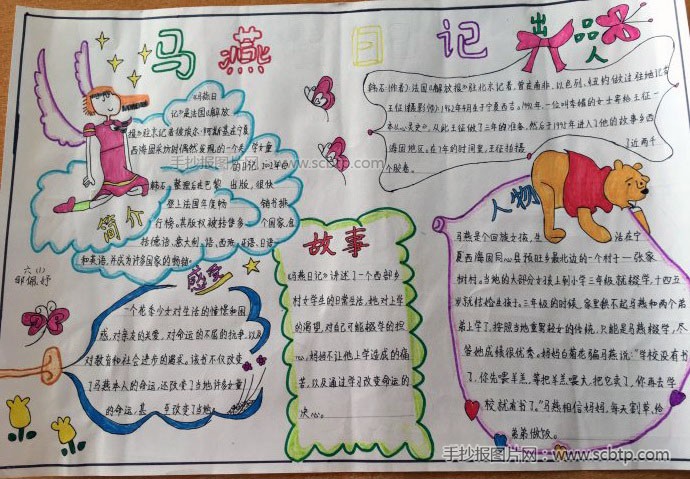 马燕日记
出品人
《马燕日
记》是法国《解放
报》驻北京记者彼埃尔·阿斯基在宁夏
西海固采访时偶然发现的一个失学女童
的日记.2002年由
韩石整理后在巴黎出版，很快
登上法国年度畅销书排
行榜。其版权被转售多个国家，包
括德语、意大利、语、西班牙语、日语、
和英语，并成为许多国家的畅销
简介
韩石(作者)：法国《解放报》驻北京记者，曾在南非、以色列、纽约做过驻地记者
王征(摄影师)：1962年4月生于宁夏西吉。1992年，一位叫韦娜的女士寄给王征一
本《心灵史》。从此王征做了三年的准备，然后于1995年进入了他的故事乡西
海固地区。在7年的时间里，王征拍摄了近两千
个胶卷。
六(1)
邹佩妤
感受
一个花季少女对生活的憧憬和困
惑，对亲友的关爱，对命运的不屈的抗争，以及
对教育和社会进步的渴求。该书不仅改变
了马燕本人的命运，还改变了当地许多女童
的命运，甚至改变了当地。
故事
《马燕日记》讲述了一个西部乡
村女学生的日常生活，她对上学
的渴望，对自己可能辍学的担
心，妈妈不让他上学造成的痛
苦，以及通过学习改变命运的
决心。
人物
马燕是个回族女孩，生活在宁
夏西海固同心县预旺乡最北边的一个村——张家
树村。当地的大部分女孩上到小学三年级就辍学，十四五
岁就结婚生孩子。三年级的时候，家里供不起马燕和两个弟
弟上学了，按照当地重男轻女的传统，只能是马燕辍学，尽
管她成绩很优秀。妈妈白菊花骗马燕说：“学校没有书
了，你先喂羊羔，等把羊羔喂大，把它卖了，你再去学
校就有书了。”马燕相信妈妈，每天割草，给
弟弟做饭。
手抄报图片网：www.scbtp.com
手抄报图片网：www.scbtp.com